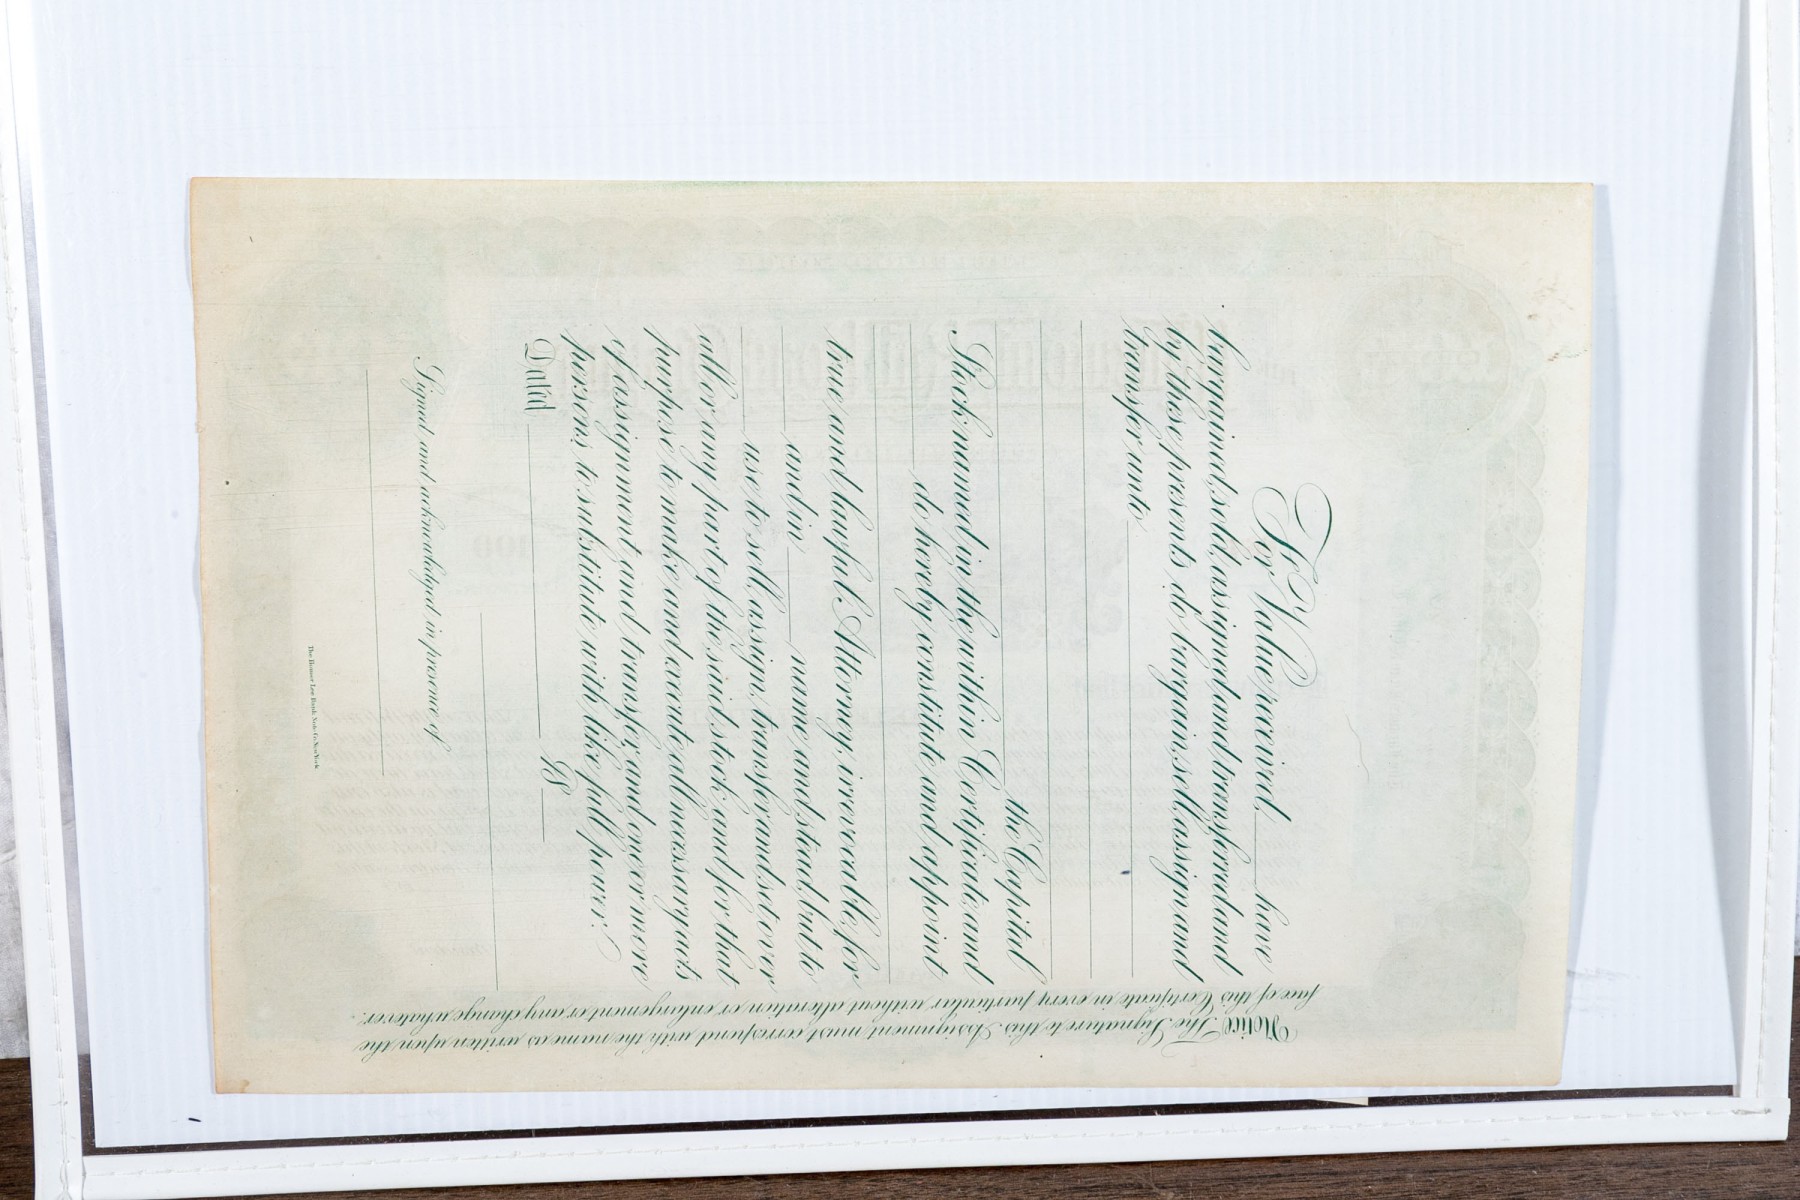 For Value received, have
bargained, sold, assigned and transferred and
by these presents, do bargain, sell, assign and
transfer unto
the Capital
Stock named in the within Certificate, and
do hereby constitute and appoint
true and lawful Attorney, irrevocable, for
and in name and stead, but to
use to sell, assign, transfer and set over
all or any part of the said stock, and for that
purpose to make and execute all necessary acts
of assignment, and transfer, and one or more
persons, to substitute with like full power.
Dated 19
Signed and acknowledged in presence of
The Homer Lee Bank Note Co. New York
Notice: The Signature to this Assignment must correspond with the name as written upon the
face of this Certificate, in every particular without alteration or enlargement or any change whatever.